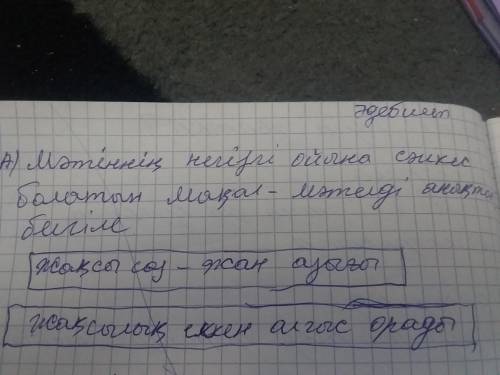 Әдебиет
А) Мәтіннің негізгі ойына сәйкес
болатын мақал-мәтелді анықтап
бегілe
жақсы сөз - жан азығы
жақсылық еккен алғыс орады